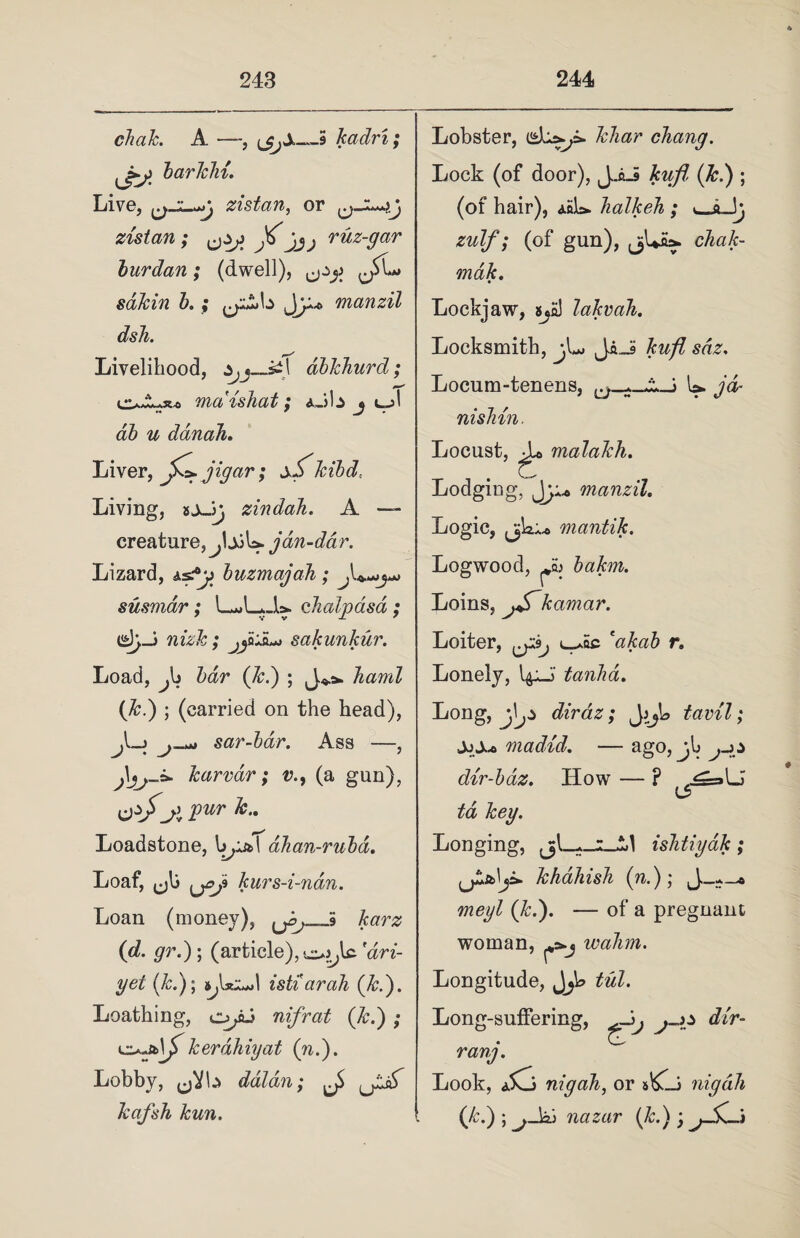 243
244
chak. A —, قدری kadrí;
برخی barkhí.
Live, زیستن zistan, or زیستن
zístan; روزگر بردن rúz-gar
burdan; (dwell), ساکن بودن
sákin b.; منزل داشتن manzil
dsh.
Livelihood, آبخورد ábkhurd;
معیشت ma'íshat; آب و دانه
áb u dánah.
Liver, جگر jigar; کبد kibd.
Living, زنده zindah. A —
creature, جاندار ján-dár.
Lizard, بزمجه buzmajah; سوسمار
súsmár; چلپاسا chalpásá;
نزک nizk; سقنقور sakunkúr.
Load, بار bár (k.); حمل haml
(k.); (carried on the head),
سربار sar-bár. Ass —,
خروار karvár; v., (a gun),
پر کردن pur k..
Loadstone, آهنربا áhan-rubá.
Loaf, قرص نان kurs-i-nán.
Loan (money), قرض karz
(d. gr.); (article), عاریت 'ári-
yet (k.); استعاره isti'arah (k.).
Loathing, نفرت nifrat (k.);
کراهیت keráhiyat (n.).
Lobby, دالان dálán; کفش کن
kafsh kun.
Lobster, خرچنگ khar chang.
Lock (of door), قفل kufl (k.);
(of hair), حلقه halkeh; زلف
zulf; (of gun), چقماق chak-
mák.
Lockjaw, لقوه lakvah.
Locksmith, قفل ساز kufl sáz.
Locum-tenens, جا نشین já-
nishín.
Locust, ملخ malakh.
Lodging, منزل manzil.
Logic, منطق mantik.
Logwood, بقم bakm.
Loins, کمر kamar.
Loiter, عقب رفتن 'akab r.
Lonely, تنها tanhá.
Long, دراز diráz; طویل tavíl;
مدید madíd. — ago, دیر باز
dír-báz. How — ? تا کی
tá key.
Longing, اشتیاق ishtiyák;
خواهش kháhish (n.); میل
meyl (k.). — of a pregnant
woman, وحم wahm.
Longitude, طول túl.
Long-suffering, دیر رنج dír-
ranj.
Look, نگه nigah, or نگاه nigáh
(k.); نظر nazar (k.); نگر